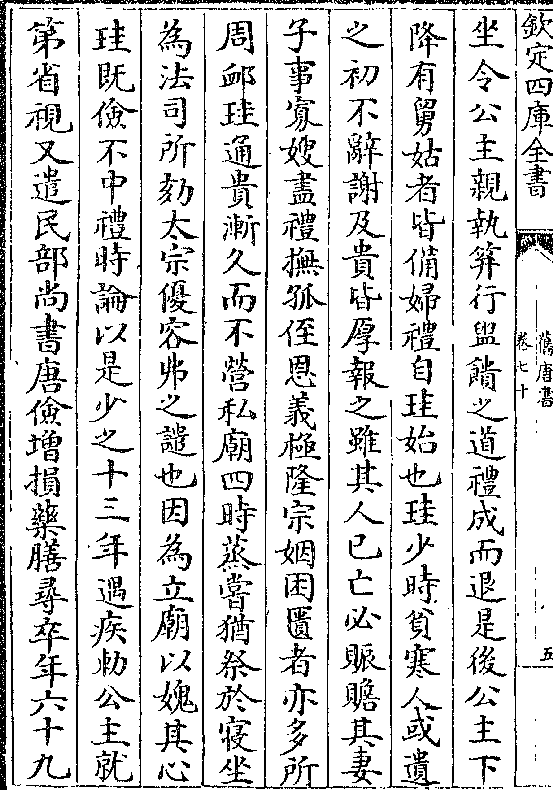 欽定四庫全書
舊唐書
卷七十
五
坐令公主親執笲行盥饋之道禮成而退是後公主下
降有舅姑者皆備婦禮自珪始也珪少時貧寒人或遺
之初不辭謝及貴皆厚報之雖其人已亡必賑贍其妻
子事寡嫂盡禮撫孤侄恩義極隆宗姻困匱者亦多所
周䘏珪通貴漸久而不營私廟四時蒸嘗猶祭於寢坐
為法司所劾太宗優容弗之譴也因為立廟以媿其心
珪既儉不中禮時論以是少之十三年遇疾勅公主就
第省視又遣民部尚書唐儉増損藥膳尋卒年六十九